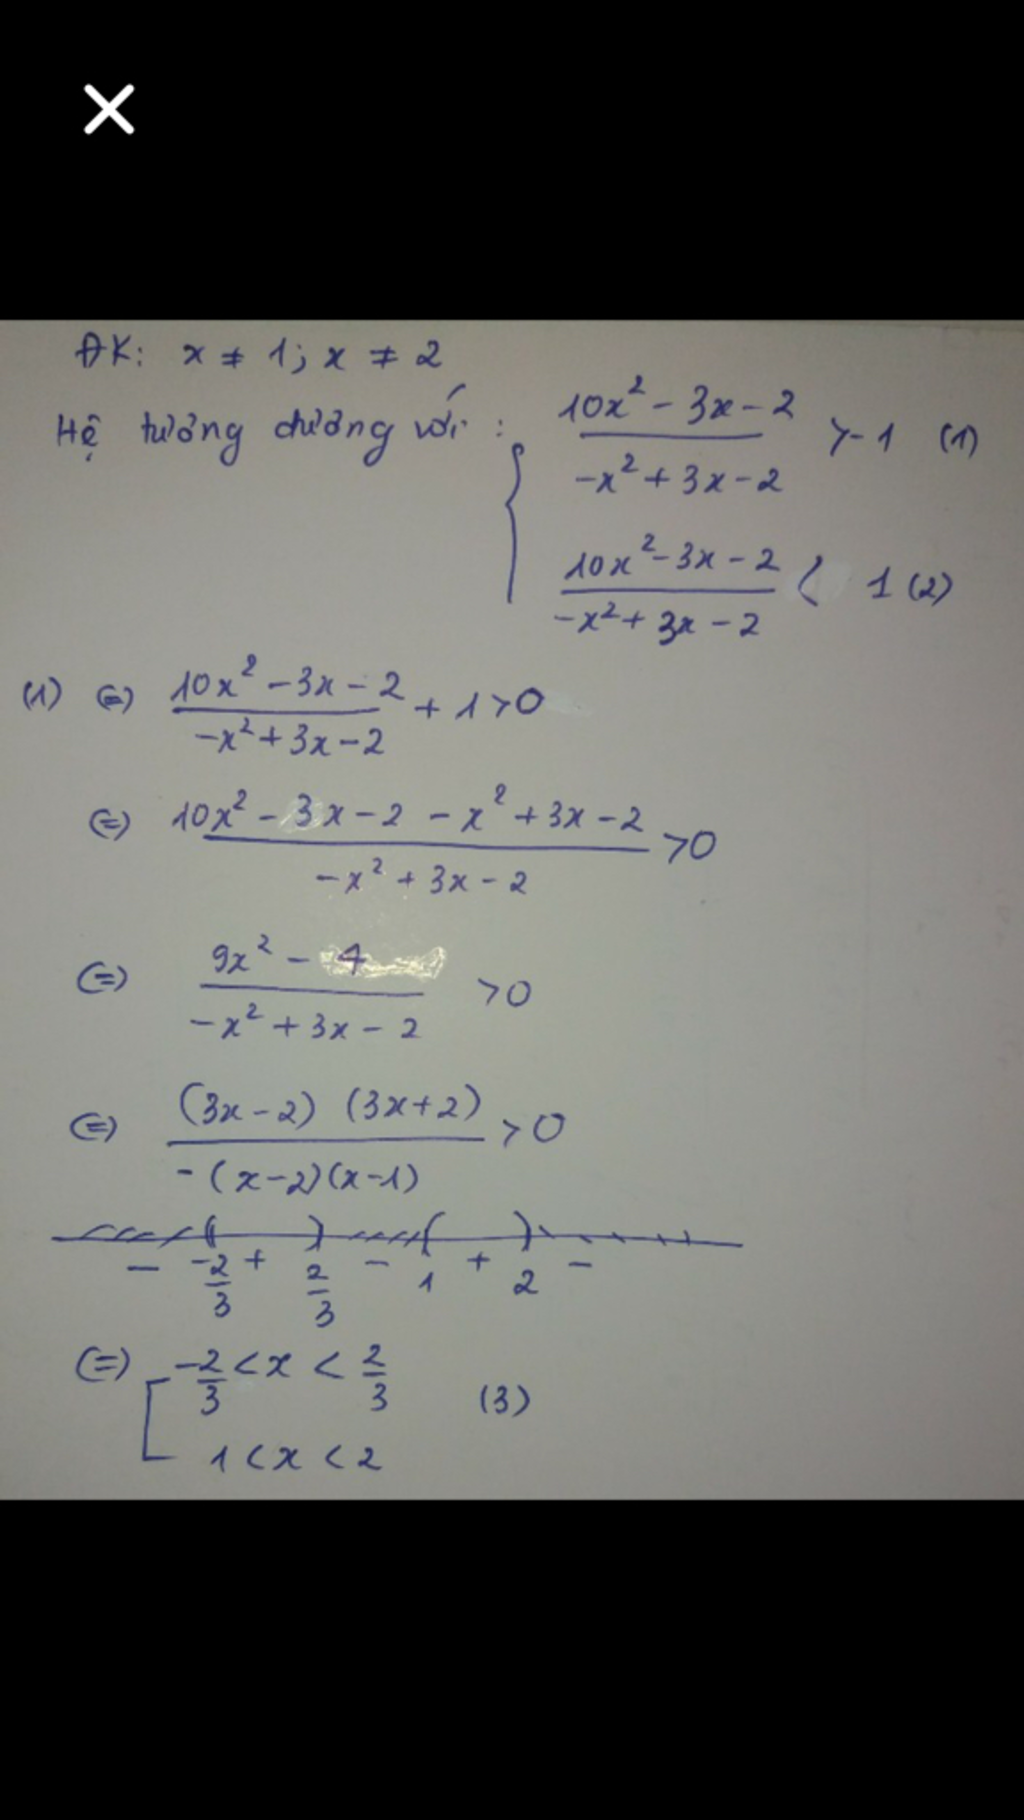 ĐK: x ≠ 1; x ≠ 2
Hệ tương đương với: { (10x² - 3x - 2)/(-x² + 3x - 2) > -1 (1)
(10x² - 3x - 2)/(-x² + 3x - 2) < 1 (2)
(1) (=) (10x² - 3x - 2)/(-x² + 3x - 2) + 1 > 0
(=) (10x² - 3x - 2 - x² + 3x - 2)/(-x² + 3x - 2) > 0
(=) (9x² - 4)/(-x² + 3x - 2) > 0
(=) ((3x - 2) (3x + 2))/(-(x - 2)(x - 1)) > 0
- -2/3 + 2/3 - 1 + 2 -
(=) [ -2/3 < x < 2/3 (3)
1 < x < 2